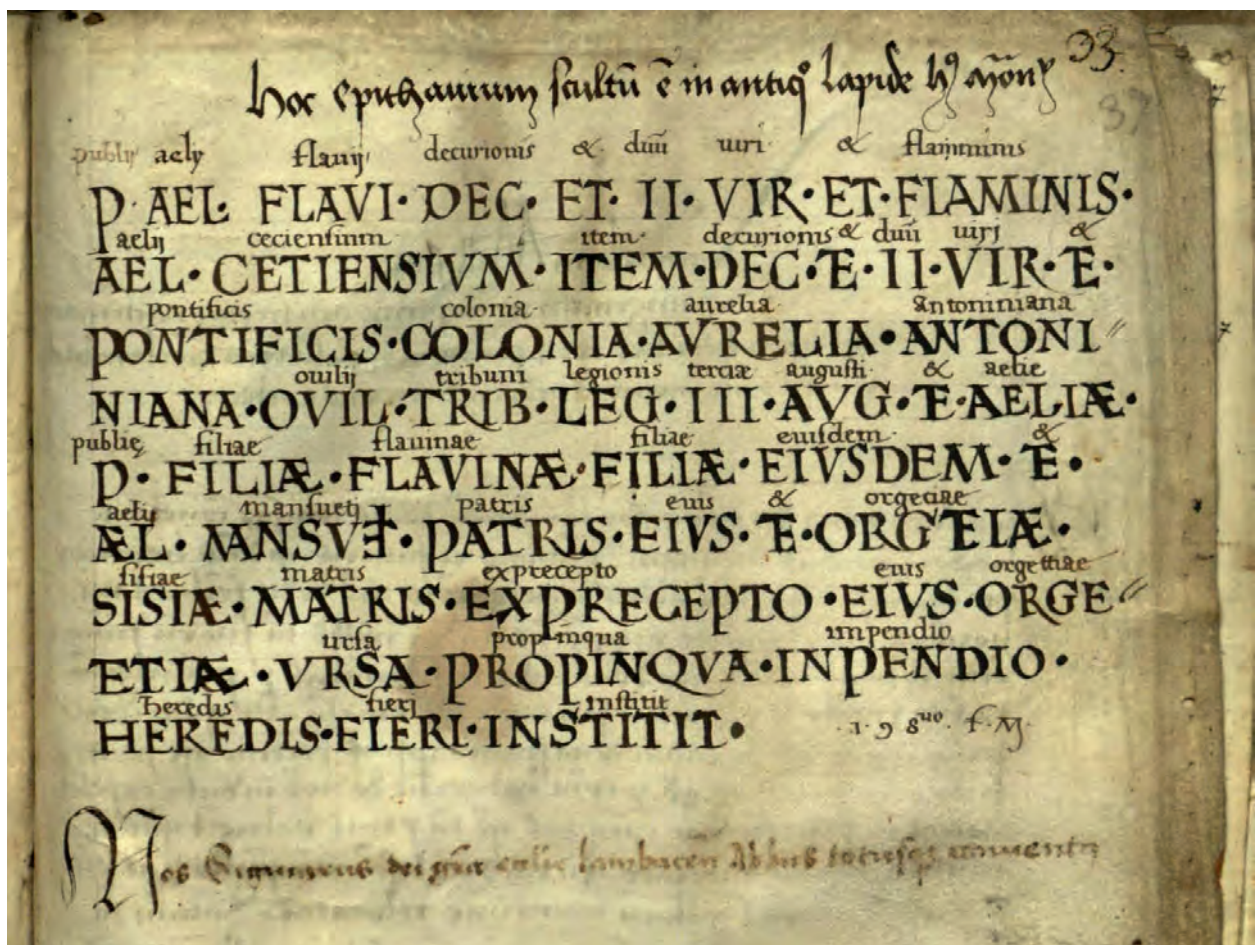 33
Hoc epithaurum scultū ē in antiqº lapide
39
publij aelij flavij decurionis & duū uiri & flaminis
P · AEL · FLAVI · DEC · ET · II · VIR · ET · FLAMINIS ·
aelij ceciensium item · decurionis & duū uiri &
AEL · CETIENSIVM · ITEM · DEC · E · II · VIR · E ·
pontificis colonia · aurelia · antoniniana
PONTIFICIS · COLONIA · AVRELIA · ANTONI //
ouilij tribuni legionis terciæ augusti & aelie
NIANA · OVIL · TRIB · LEG · III · AVG · E · AELIÆ ·
publię filiae flauinae filiae eiusdem &
P · FILIÆ · FLAVINÆ · FILIÆ · EIVSDEM · E ·
aelij mansueti patris eius & orgeciae
ÆL · MANSVETI · PATRIS · EIVS · E · ORGETIÆ ·
sisiae matris exprecepto eius orgettiae
SISIÆ · MATRIS · EXPRECEPTO · EIVS · ORGE //
ursa propinqua impendio
ETIÆ · VRSA · PROPINQVA · INPENDIO ·
heredis fieri instituit
HEREDIS · FIERI · INSTITIT ·
· 1 · 9 8ᵘᵒ · f · M ·
Nos Sigmarus dei gr̄a eccl̄ie lambaceñ Abbas totusqz conventus